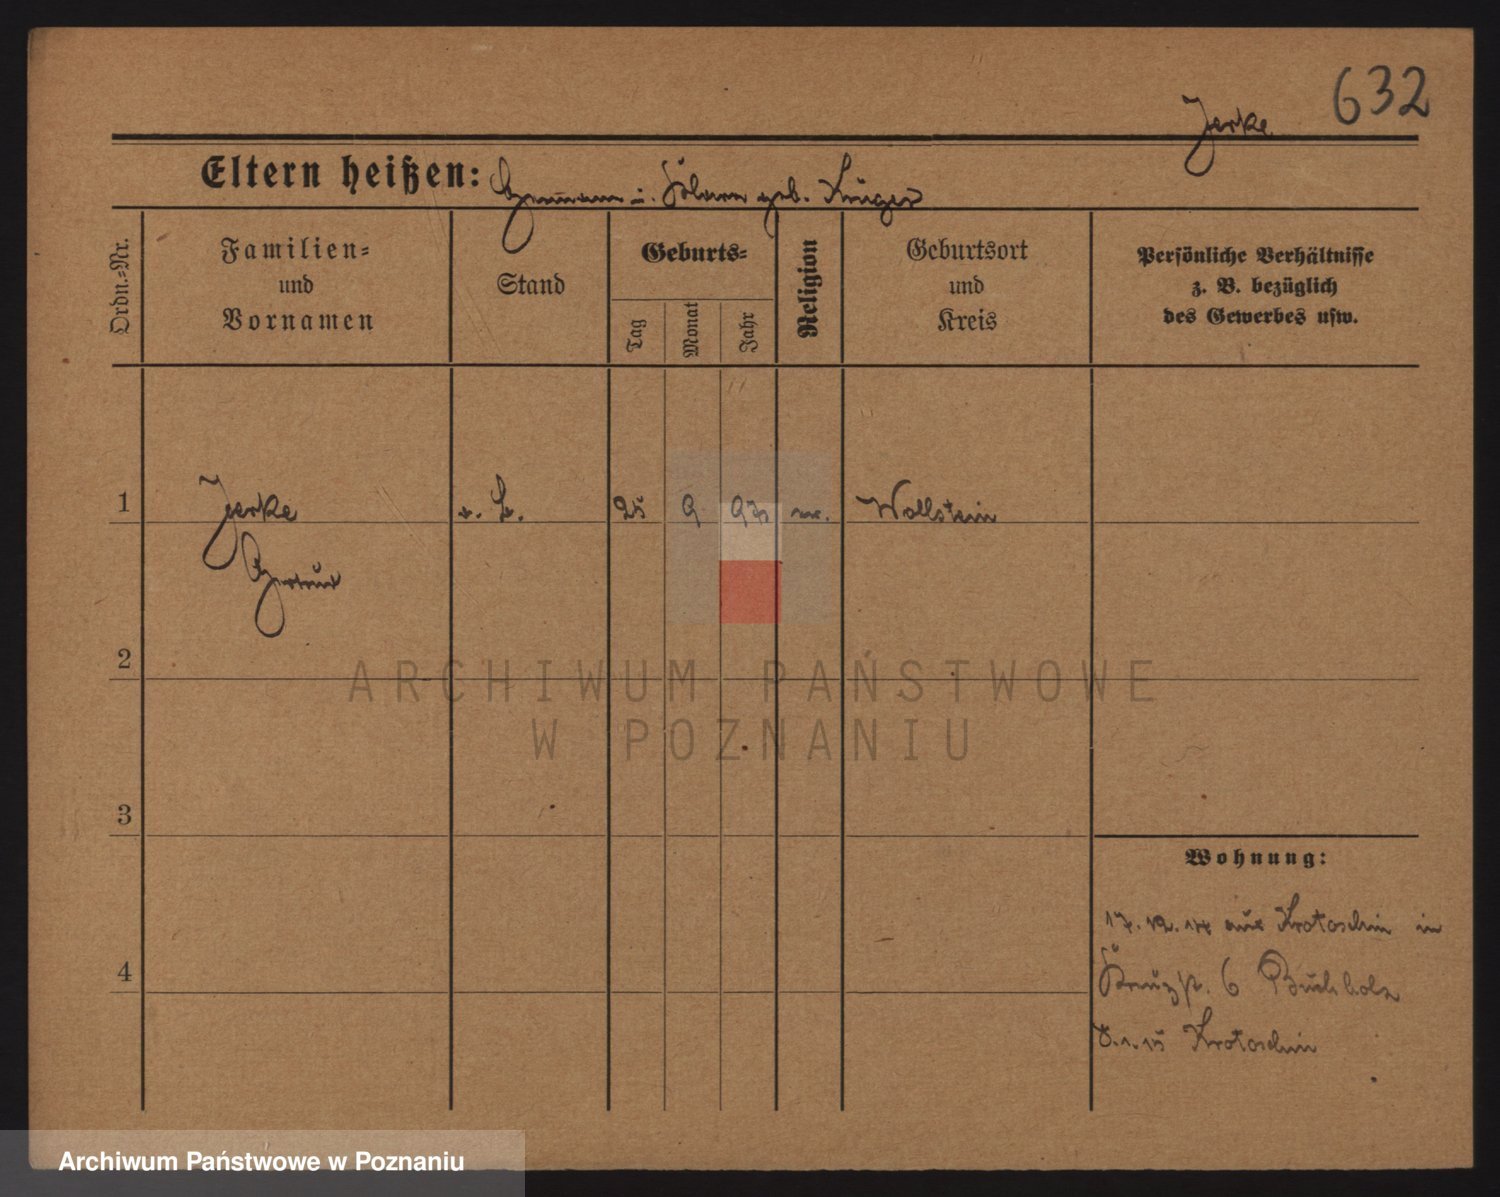 632
Jerke
Eltern heißen: Hermann u. geb. Krüger
Ordn.=Nr.
Familien=
und
Vornamen
Stand
Geburts=
Tag
Monat
Jahr
Religion
Geburtsort
und
Kreis
Persönliche Verhältnisse
z. B. bezüglich
des Gewerbes usw.
1
Jerke
25 9 Wollstein
Gertrud
2
ARCHIWUM PAŃSTWOWE
W POZNANIU
3
Wohnung:
17. 12. 14 aus Krotoschin in
4
Kreuzstr. 6 Buchholz
8. 1. 15 Krotoschin
Archiwum Państwowe w Poznaniu